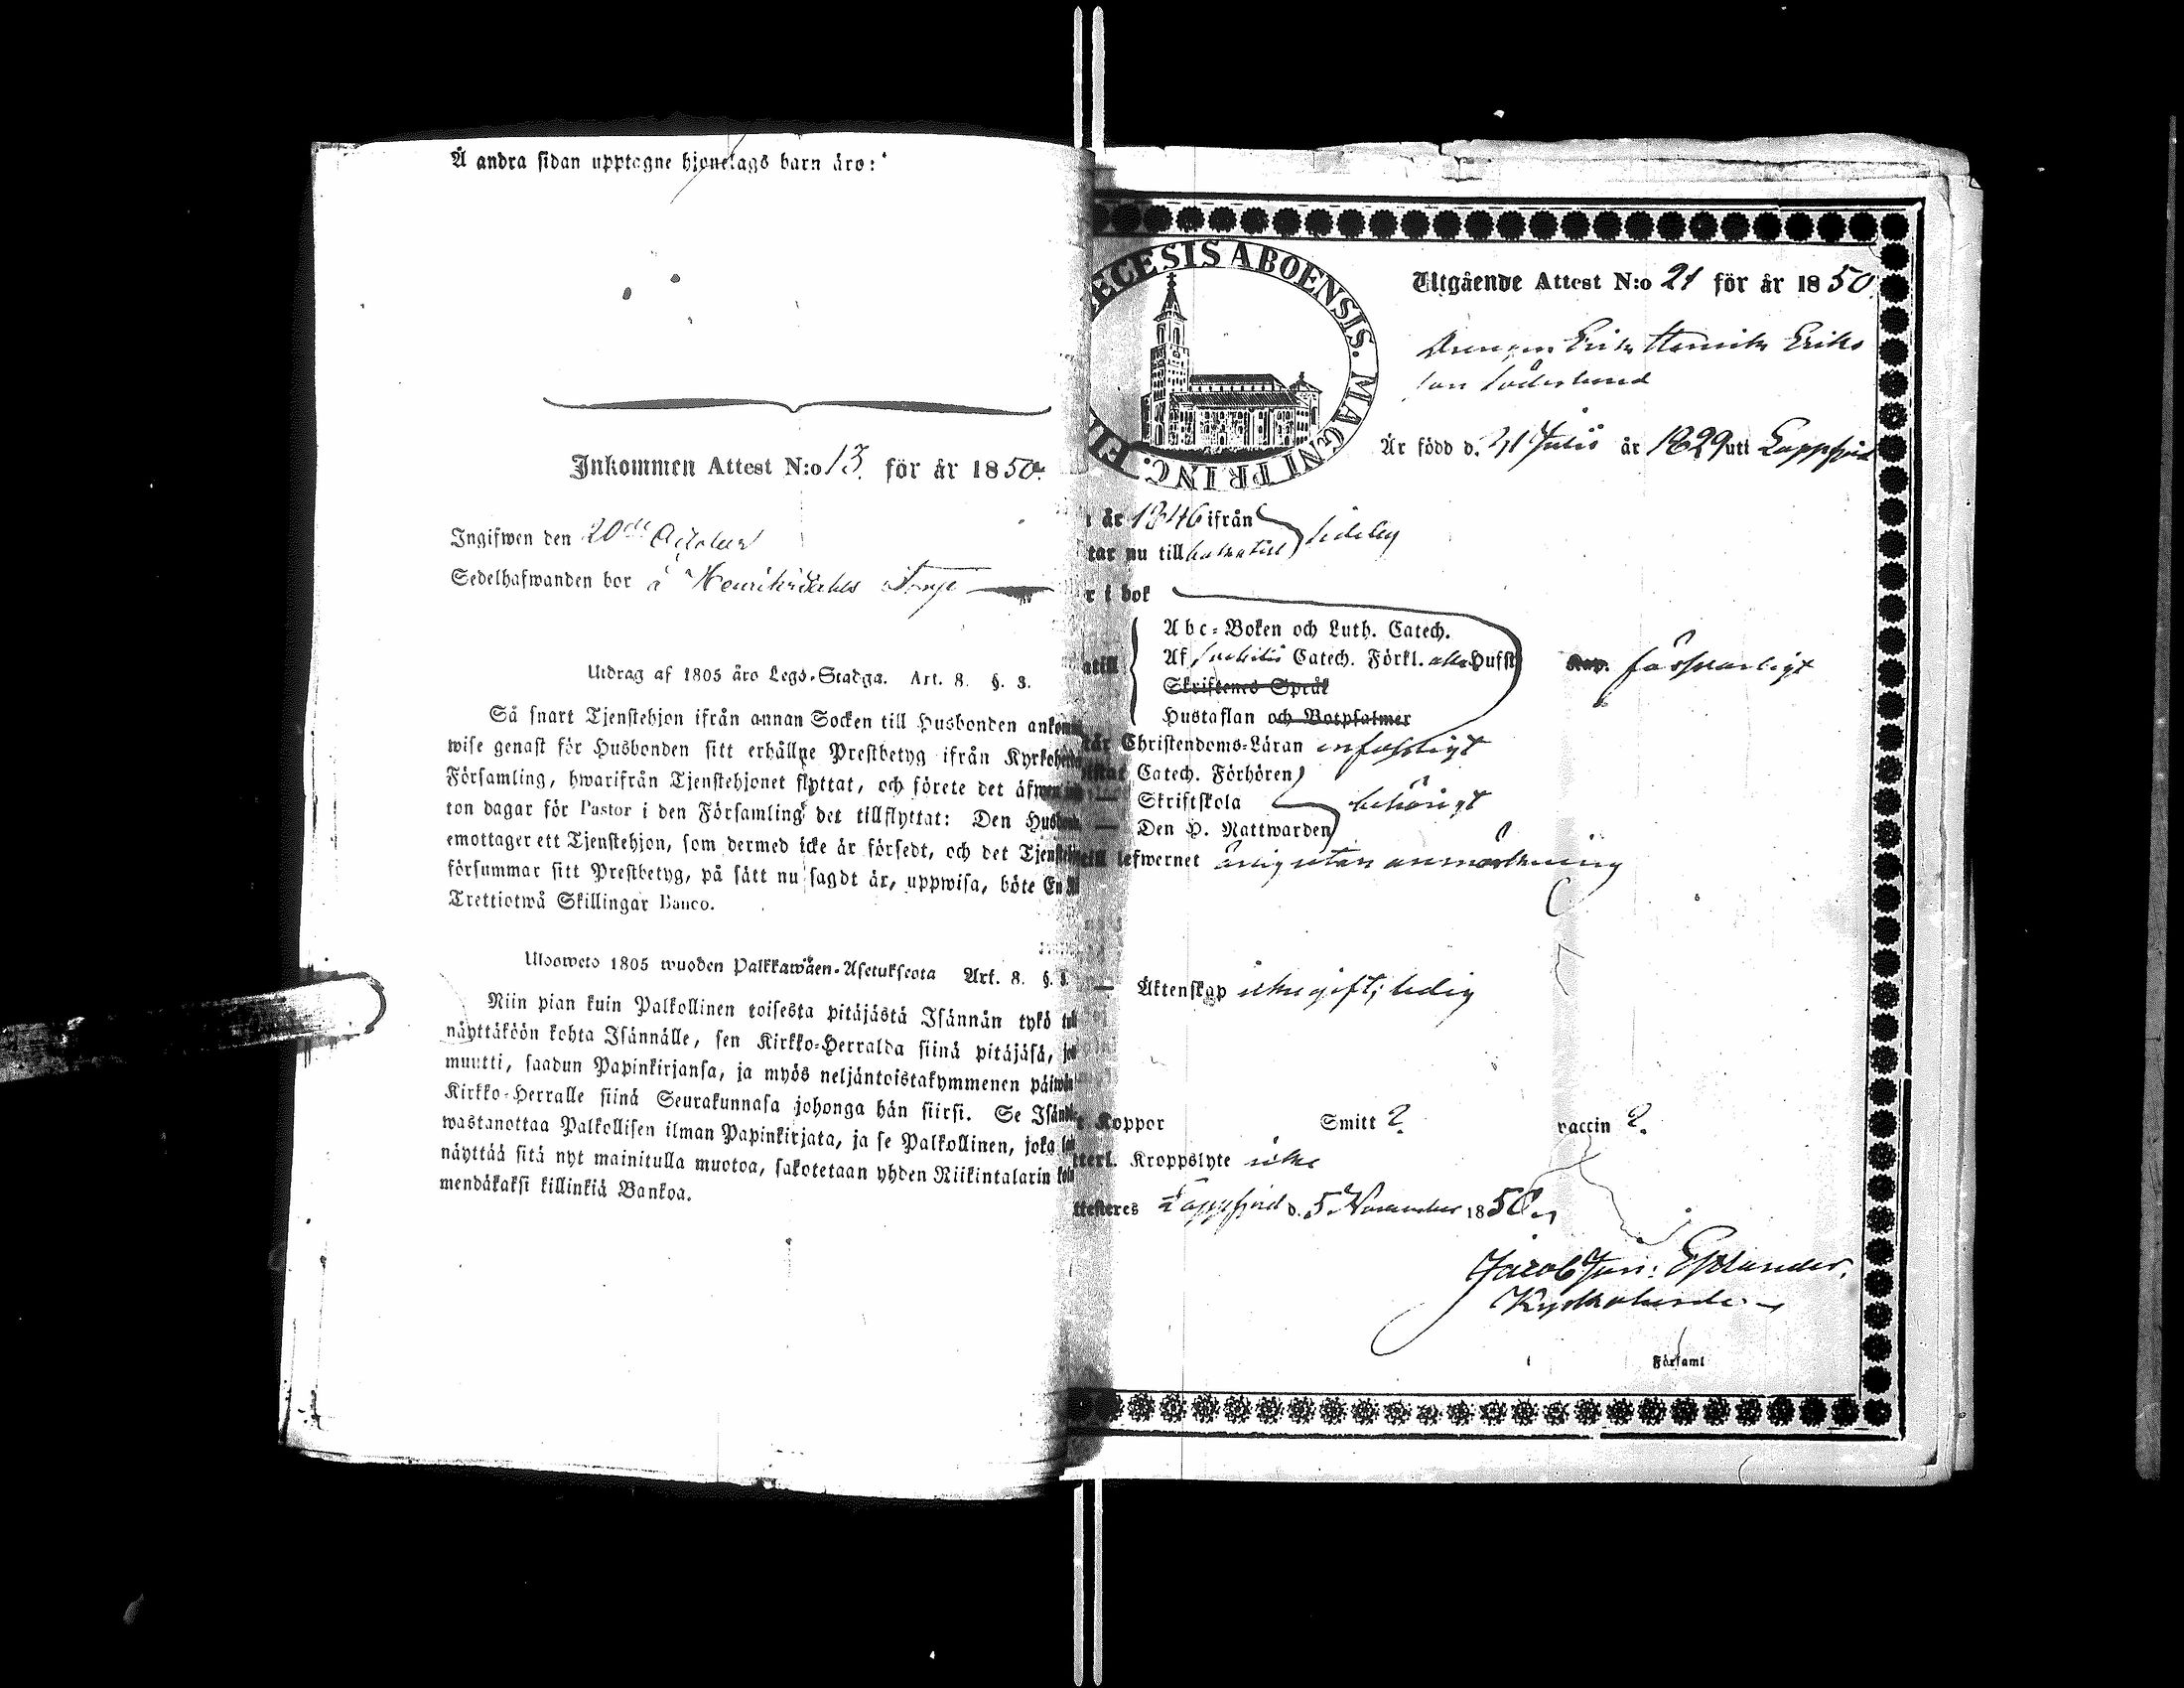 Å andra sidan upptagne hjonelags barn äro:
Inkommen Attest N:o 13. för år 1850
Ingifwen den 20de October
Sedelhafwanden bor å Henriksdahls Torp
Utdrag af 1805 års Legs-Stadga. Art. 8. §. 3.
Så snart Tjenstehjon ifrån annan Socken till Husbonden ankom
wise genast för Husbonden sitt erhållne Prestbetyg ifrån Kyrkoher
Församling, hwarifrån Tjenstehjonet flyttat, och förete det äfwen
ton dagar för Pastor i den Församling det tillflyttat: Den Husbon
emottager ett Tjenstehjon, som dermed icke är försedt, och det Tjenste
försummar sitt Prestbetyg, på sätt nu sagdt är, uppwisa, böte En R
Trettiotwå Skillingar Banco.
Ulosweto 1805 wuoden Palkkawäen-Asetuksesta Art. 8. §. 3.
Niin pian kuin Palkollinen toisesta pitäjästä Isännän tykö tul
näyttäköön kohta Isännälle, sen Kirkko-Herralda siinä pitäjäsä, jos
muutti, saadun Papinkirjansa, ja myös neljäntoistakymmenen päiwän
Kirkko-Herralle siinä Seurakunnasa johonga hän siirsi. Se Isänd
wastanottaa Palkollisen ilman Papinkirjata, ja se Palkollinen, joka
näyttää sitä nyt mainitulla muotoa, sakotetaan yhden Riikintalarin kol
mendäkaksi killinkiä Bankoa.
ECESIS ABOENSIS. MAGNI PRINC. FIN
Utgående Attest N:o 21 för år 1850.
Drengen Erik Henrik Eriks
son Söderlund
Är född d. 21 Julii år 1829 uti Lappfjerd
r år 1846 ifrån
tar nu till Sideby
r i bok
Abc-Boken och Luth. Catech.
Af Svebilii Catech. Förkl. alla Hufst
Kap. försvarligt
atill
Skriftenes Språk
Hustaflan och Botpsalmer
tår Christendoms-Läran enfaldigt
Catech. Förhören
— Skriftskola behörigt
— Den H. Nattwarden
till lefwernet ärlig utan anmärkning
— Äktenskap icke gift; ledig
t Koppor Smitt ?. vaccin ?.
tterl. Kroppslyte icke
ttesteres Lappfjerd d. 5 November 1850
Jacob Jun: Estlander.
Kyrkoherde
i Församl